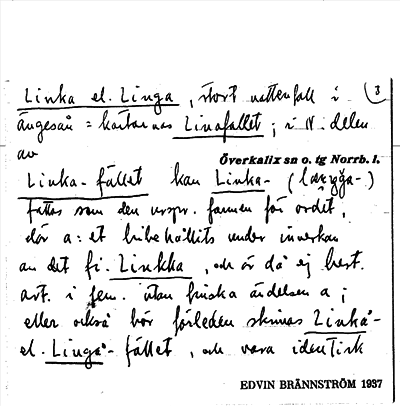 Linka el. Linga, stort vattenfall i 3
ängesån = kartornas Linafallet; i N. delen
av
Överkalix sn o. tg Norrb. l.
Linka-fallet kan Linka- (
fattas som den urspr. formen för ordet,
där a:et bibehållits under inverkan
av det fi. Linkka, och är då ej best.
art. i fem. utan finska ändelsen a;
eller också bör förleden skrivas Linkå-
el. Lingå-fallet, och vara identisk
EDVIN BRÄNNSTRÖM 1937